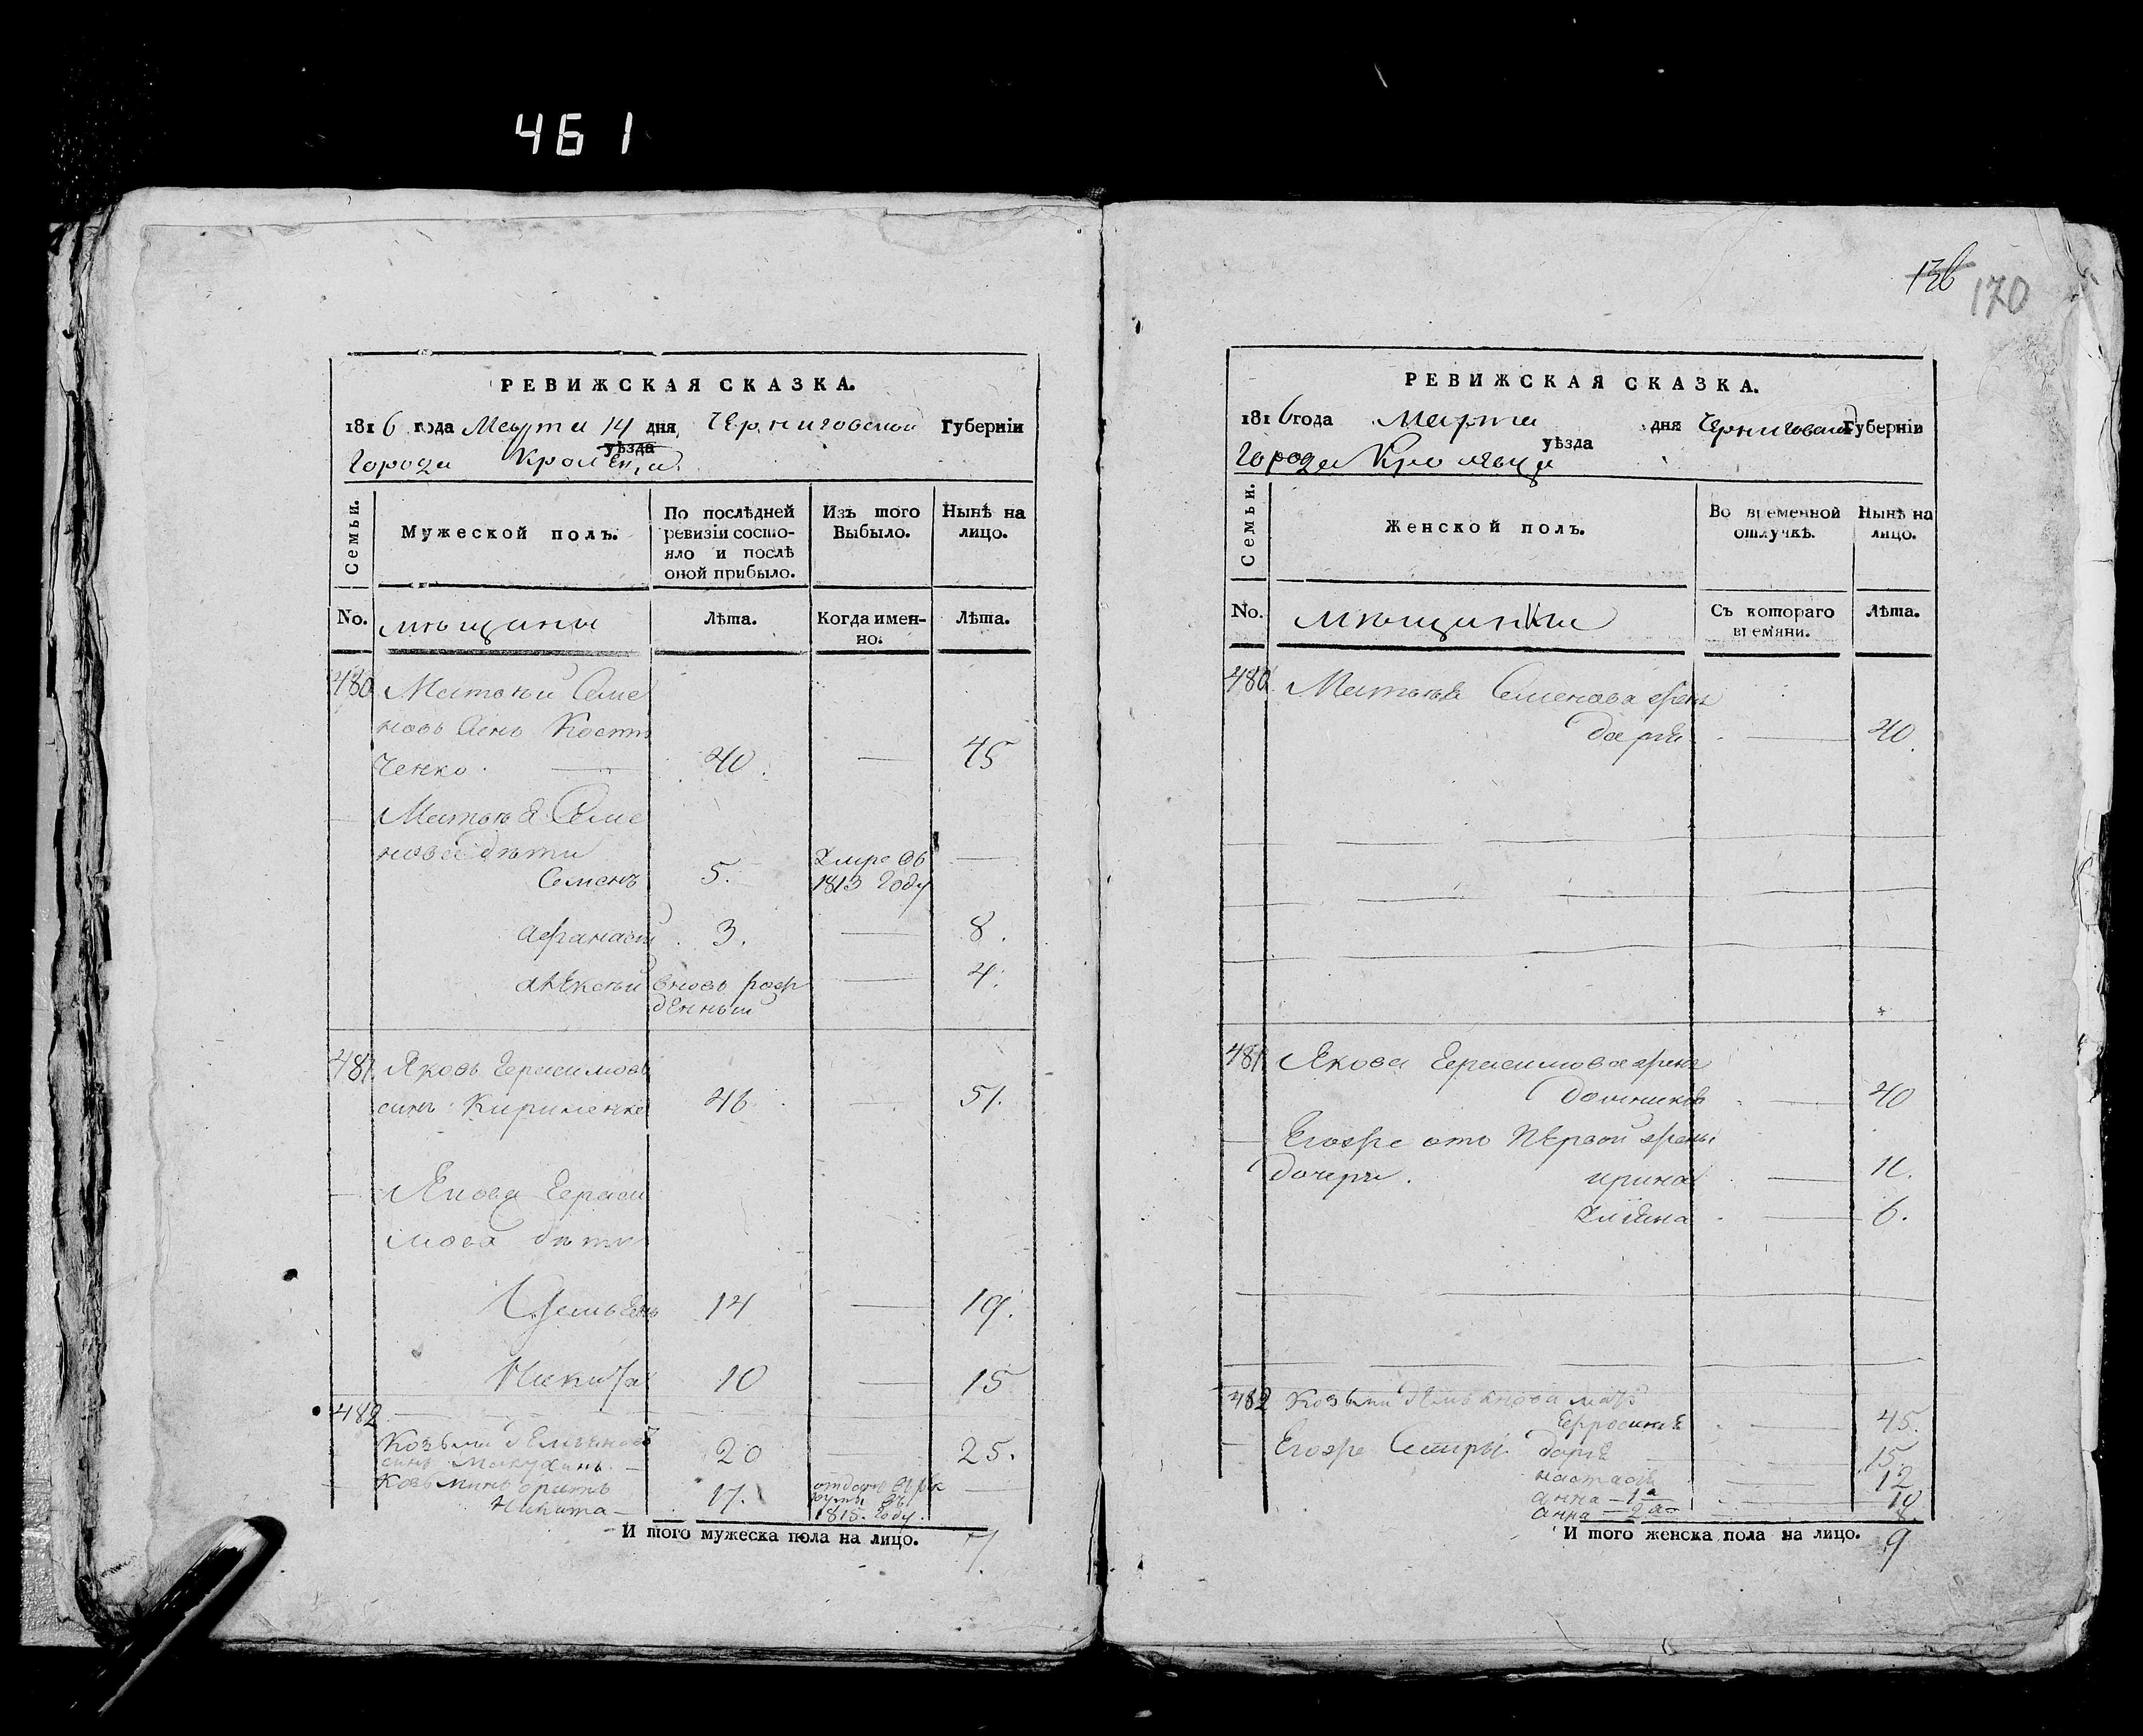 461
РЕВИЖСКАЯ СКАЗКА.
1816 года Марта 14 дня Черниговской Губерніи
уѣзда
Города Кролевца
Семьи.
Мужеской полъ.
По послѣдней ревизіи состо-
яло и послѣ
оной прибыло.
Изъ того
Выбыло.
Нынѣ на
лицо.
No.
мѣщаны
Лѣта.
Когда имен-
но.
Лѣта.
480 Матвѣй Семе
новъ синъ
ченко 40. — 45
Матвѣя Семе
нова дѣти
Семенъ 5. Умре въ
1813 году —
Афанасій 3. — 8.
Алексѣй вновь рож
денный — 4.
481. Яковъ Герасимовъ
синъ Кириленко 46 — 51.
Якова Гераси
мова дѣти
Демьянъ 14 — 19.
Никита 10 — 15
482
Козьма
синъ 20 — 25.
Козьминъ братъ
Никита — 17. отданъ въ рек
руты въ
1815. году. —
И того мужеска пола на лицо. 7.
136
170
РЕВИЖСКАЯ СКАЗКА.
1816 года Марта дня Черниговской Губерніи
уѣзда
Города Кролевца
Семьи.
Женской полъ.
Во временной
отлучкѣ.
Нынѣ на
лицо.
No.
мѣщанки
Съ котораго
времяни.
Лѣта.
480. Матвѣя Семенова жена
Дарія — 40.
481 Якова Герасимова жена
— 40
Егожъ отъ первой жены
дочери. Ирина — 11.
Уліяна — 6.
482 Козьми Демьянова мать
Ефросинія — 45.
Егожъ сестры Дарія — 15.
Настасія — 12
Анна — 1а — 10
Анна — 2а — 8.
И того женска пола на лицо. 9